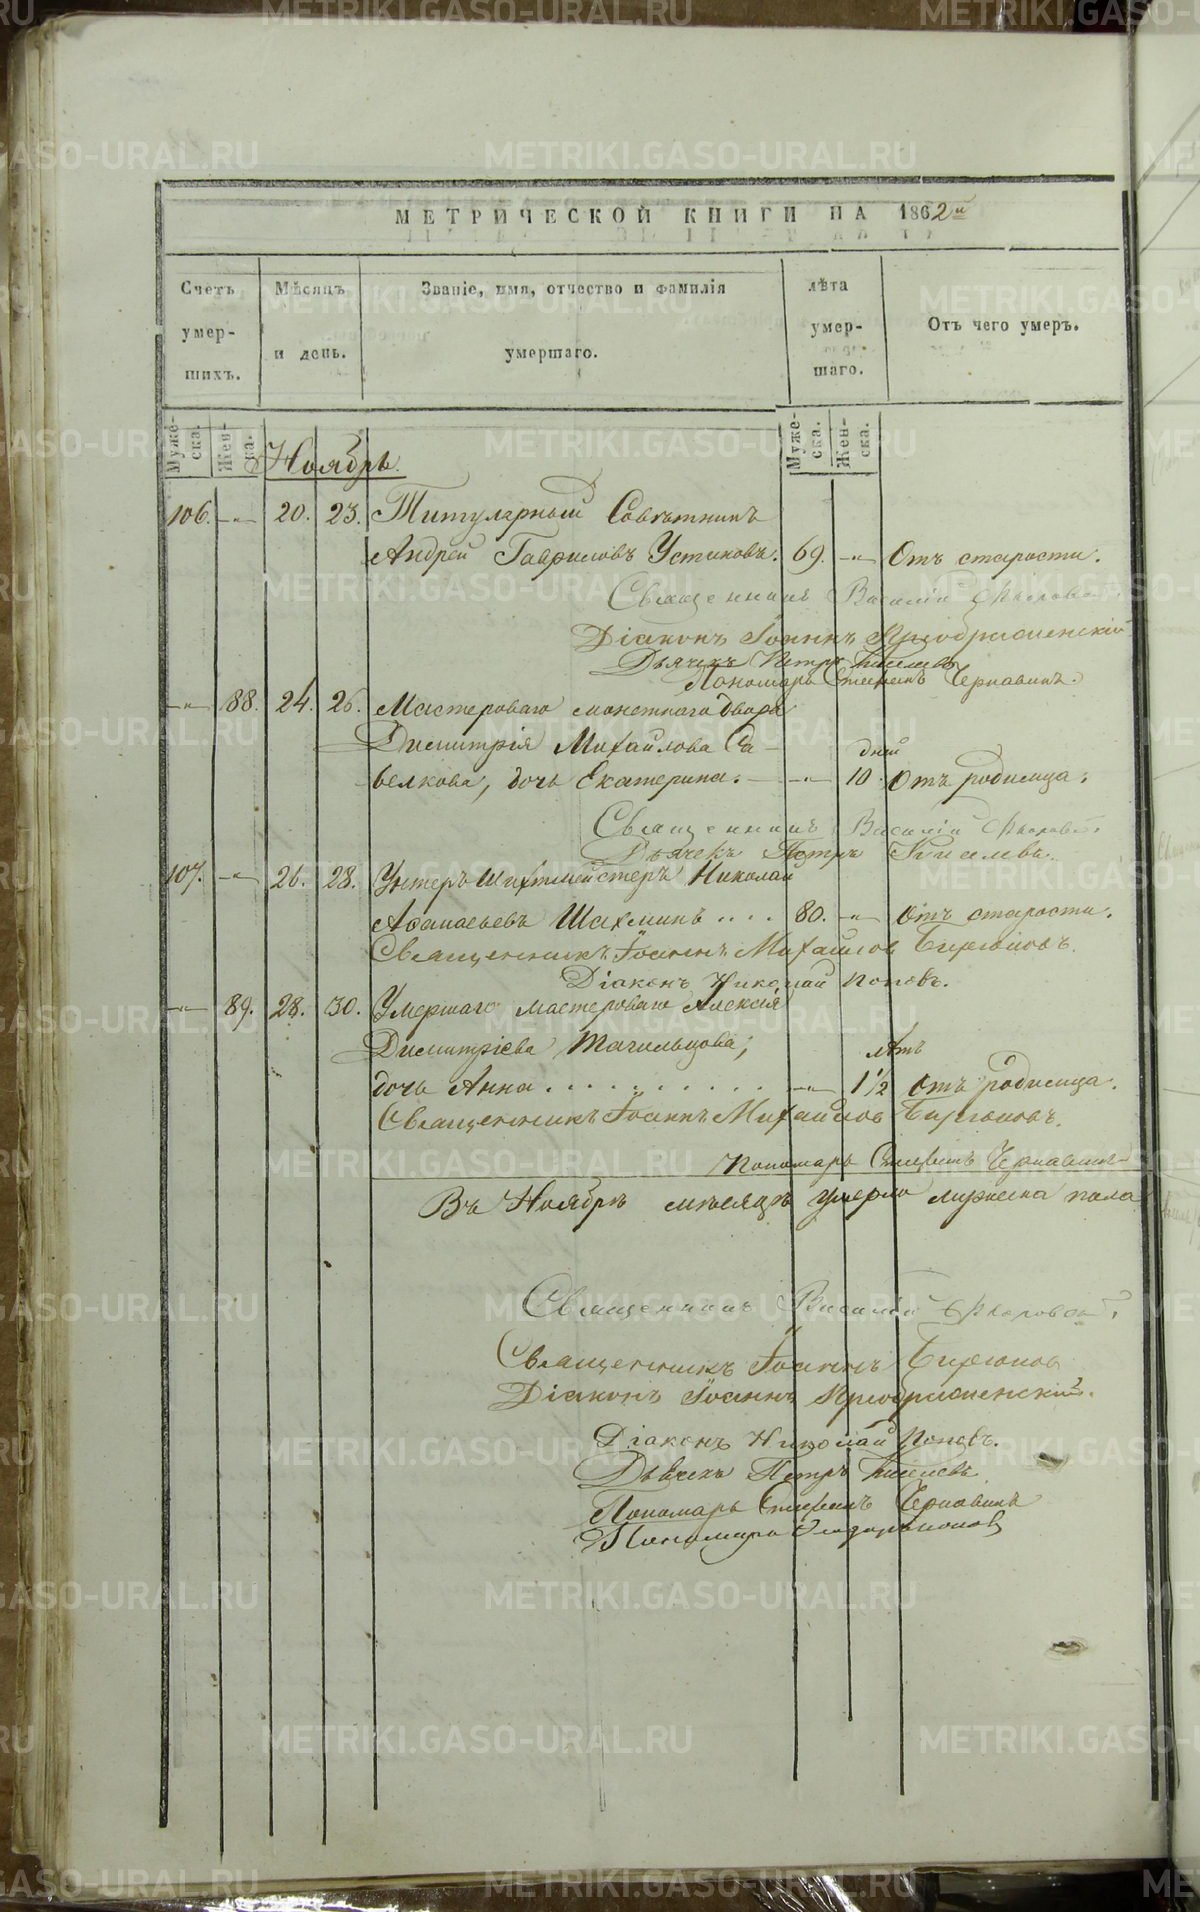 МЕТРИЧЕСКОЙ КНИГИ НА 1862й
Счетъ умер-шихъ.
Мѣсяцъ и день.
Званіе, имя, отчество и фамилія умершаго.
лѣта умер-шаго.
Отъ чего умеръ.
Муже-ска. Жен-ска. Муже-ска. Жен-ска.
Ноябрь.
106. -"- 20. 23. Титулярный Совѣтникъ
Андрей Гавриловъ Устиновъ. 69. -"- Отъ старости.
Священникъ Василій
Діаконъ Іоаннъ Преображенскій
Дьячекъ Петръ Киселевъ
Пономарь Стефанъ Чернавинъ.
-"- 88. 24. 26. Мастероваго монетнаго двора
Димитрія Михайлова Са-
велкова, дочь Екатерина. -"- 10 дней Отъ родимца.
Священникъ Василій
Дьячекъ Петръ Киселевъ.
107. -"- 26. 28. Унтеръ Шихтмейстеръ Николай
Аѳанасьевъ Шахминъ .... 80. -"- Отъ старости.
Священникъ Іоаннъ Михайлов Бирюковъ.
Діаконъ Николай Поповъ.
-"- 89. 28. 30. Умершаго мастероваго Алексія
Димитріева Тагильцова,
дочь Анна .......... -"- 1½ лѣтъ Отъ родимца.
Священникъ Іоаннъ Михайлов Бирюковъ.
Пономарь Стефанъ Чернавинъ
Въ Ноябрѣ мѣсяцѣ умерло мужеска пола
Священникъ Василій
Священникъ Іоаннъ Бирюков
Діаконъ Іоаннъ Преображенскій.
Діаконъ Николай Поповъ.
Дьячекъ Петръ Киселевъ
Пономарь Стефанъ Чернавинъ
Пономарь
METRIKI.GASO-URAL.RU